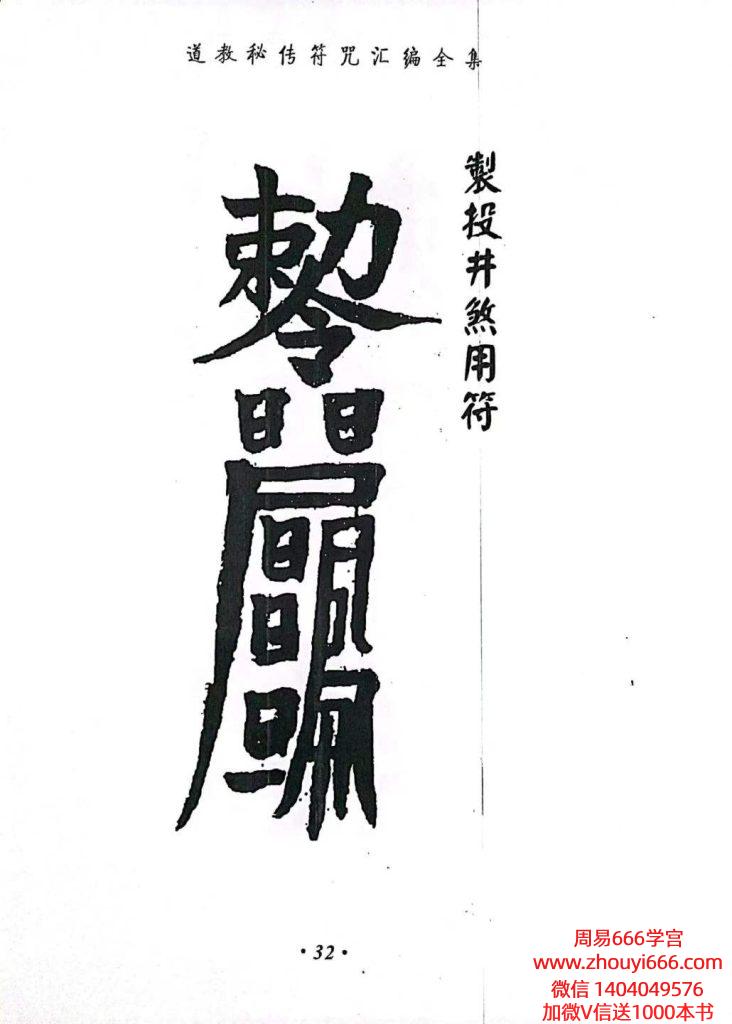 道教秘传符咒汇编全集
製投井煞用符
敕令
·32·
周易666学宫
www.zhouyi666.com
微信 1404049576
加微V信送1000本书